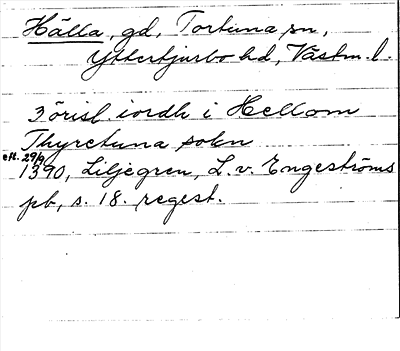 Hälla, gd, Tortuna sn,
Yttertjurbo hd, Västm. l.
3 örisl. iordh i Hellom
Thyretuna sokn
eft. 29/9
1390, Liljegren, L. v. Engeströms
pb, s. 18. regest.